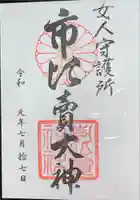 女人守護所
市比賣大神
令和
元年七月拾七日